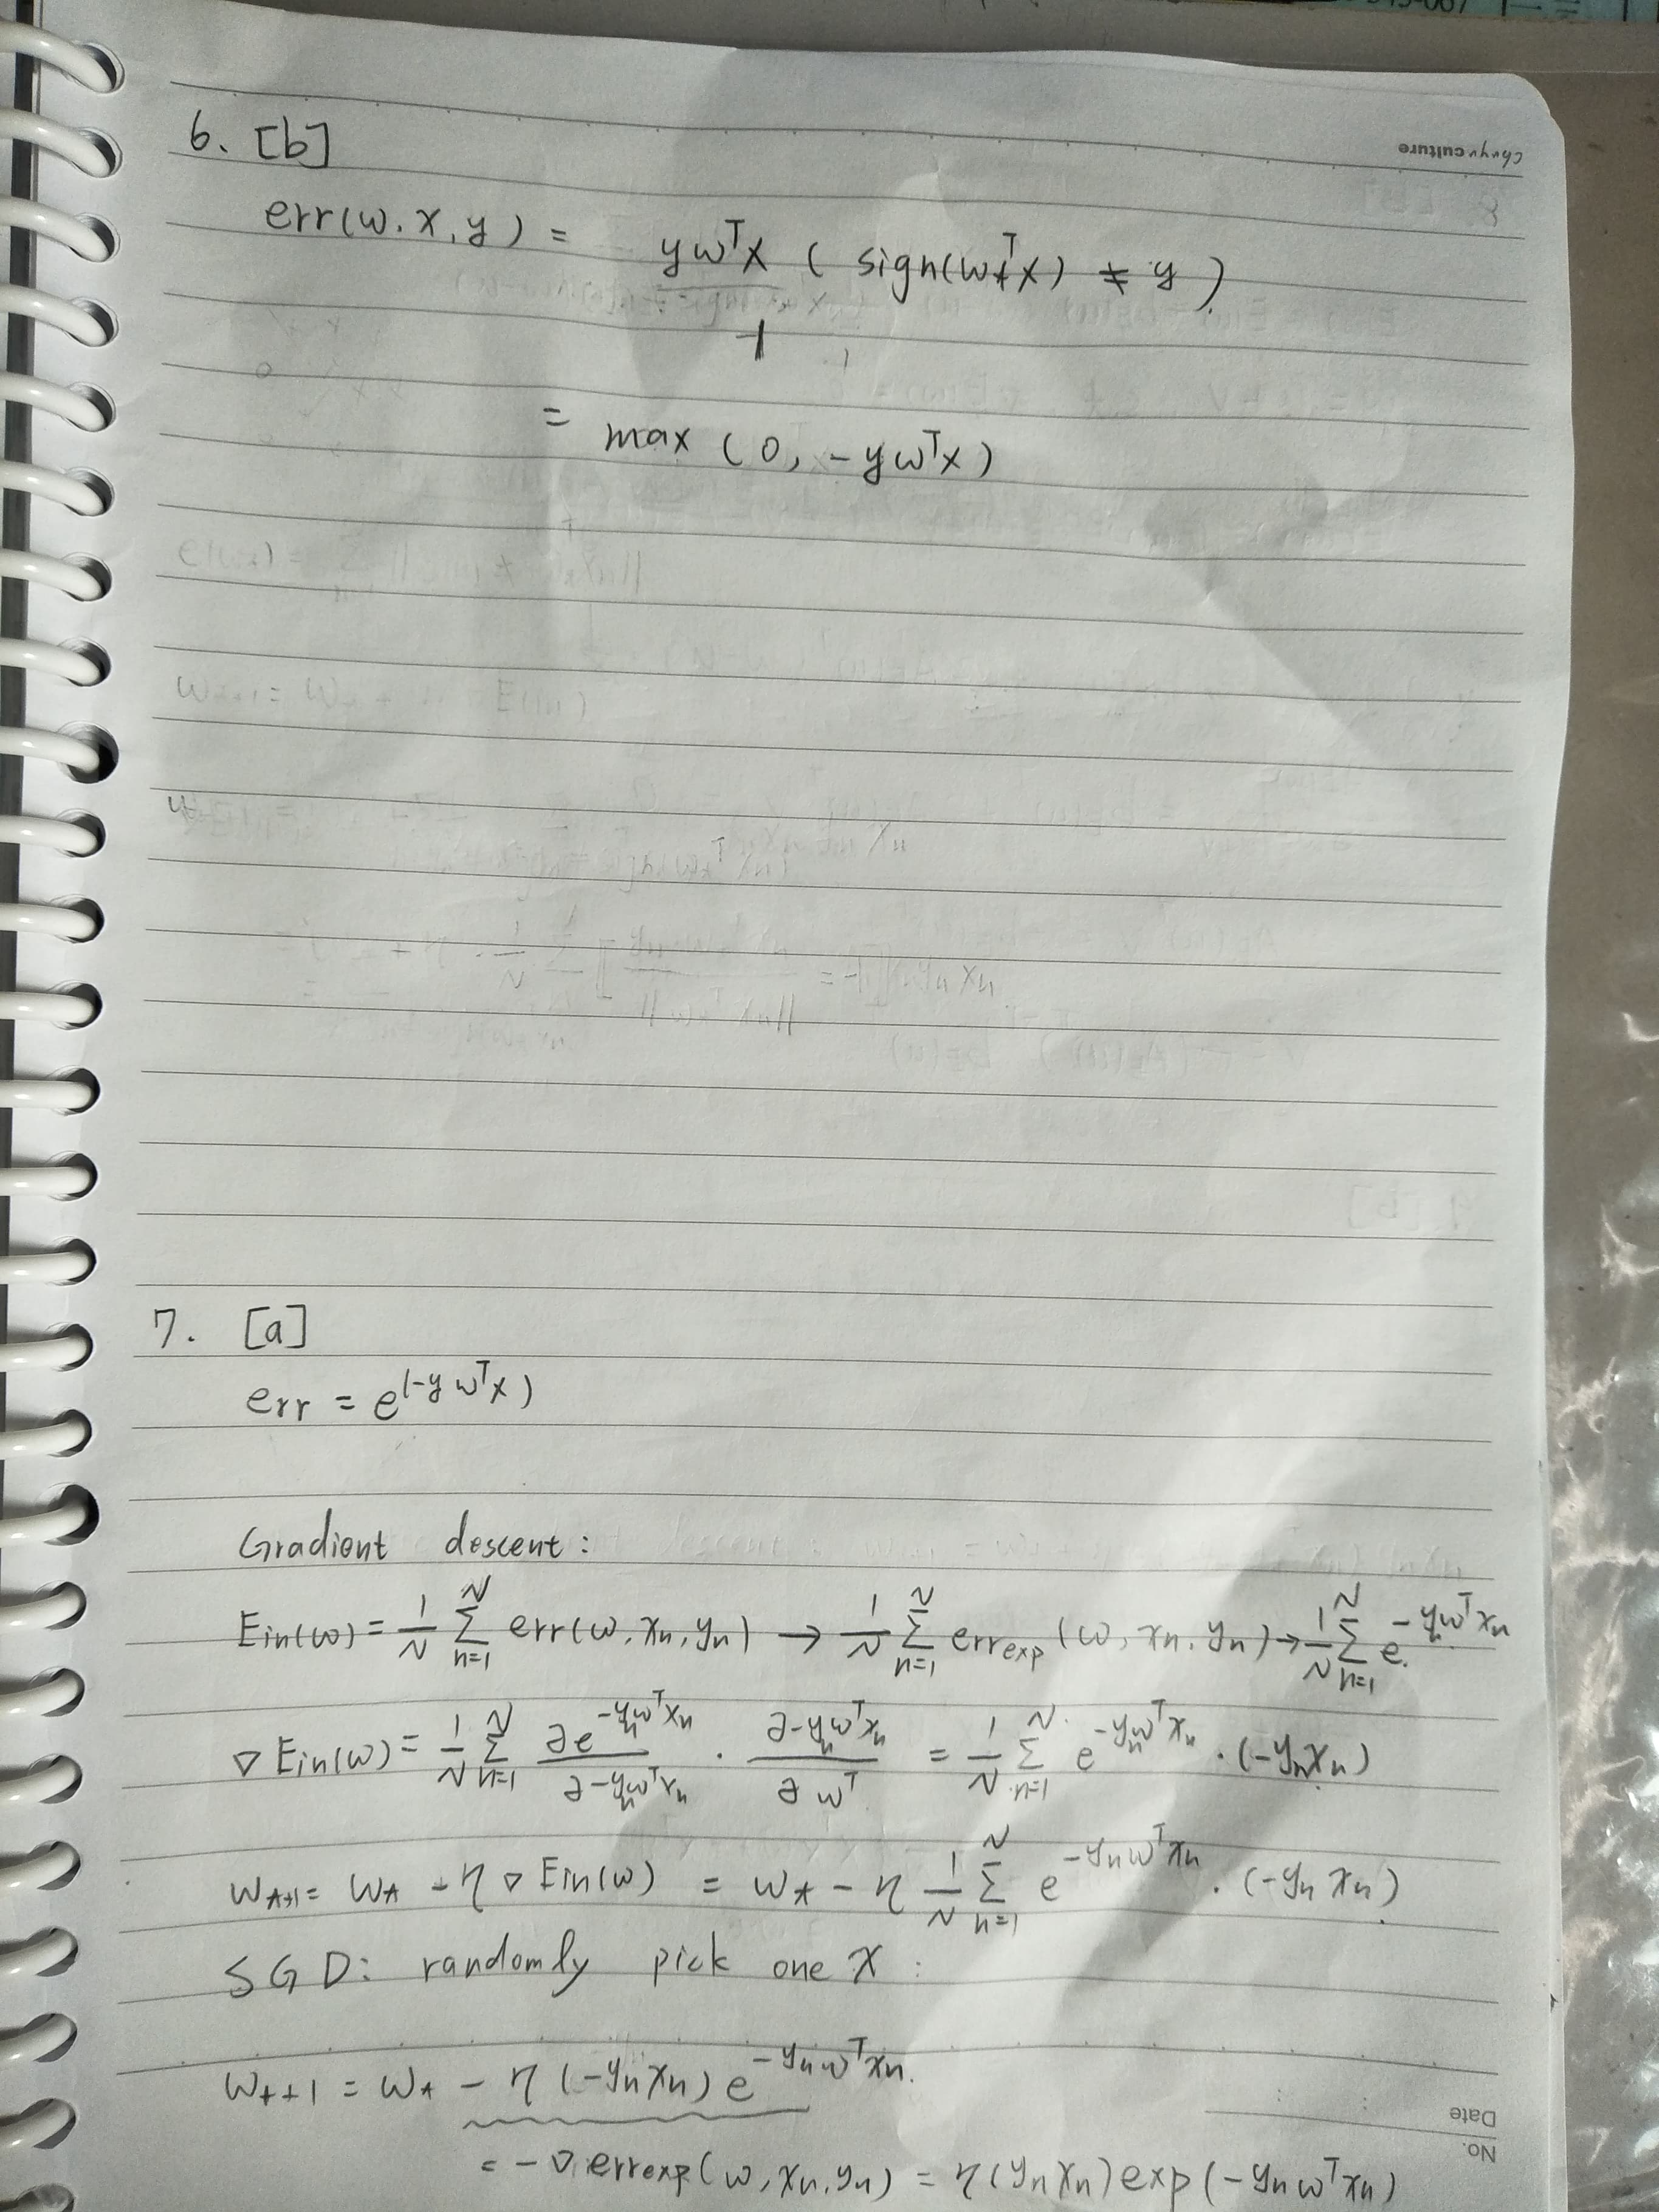 chuyu culture
6. [b]
err(w, x, y) = ywᵀx ( sign(wₜᵀx) ≠ y )
-1
= max ( 0, -ywᵀx )
7. [a]
err = e^(-ywᵀx)
Gradient descent :
Ein(w) = 1/N Σ_{n=1}^{N} err(w, xₙ, yₙ) → 1/N Σ_{n=1}^{N} err_exp (w, xₙ, yₙ) → 1/N Σ_{n=1}^{N} e^{-yₙwᵀxₙ}
∇Ein(w) = 1/N Σ_{n=1}^{N} ∂e^{-yₙwᵀxₙ}/∂-yₙwᵀxₙ · ∂-yₙwᵀxₙ/∂wᵀ = 1/N Σ_{n=1}^{N} e^{-yₙwᵀxₙ} · (-yₙxₙ)
wₜ₊₁ = wₜ - η∇Ein(w) = wₜ - η 1/N Σ_{n=1}^{N} e^{-yₙwᵀxₙ} · (-yₙxₙ)
SGD: randomly pick one x :
wₜ₊₁ = wₜ - η (-yₙxₙ) e^{-yₙwᵀxₙ}
= -∇err_exp(w, xₙ, yₙ) = η(yₙxₙ)exp(-yₙwᵀxₙ)
Date
No.